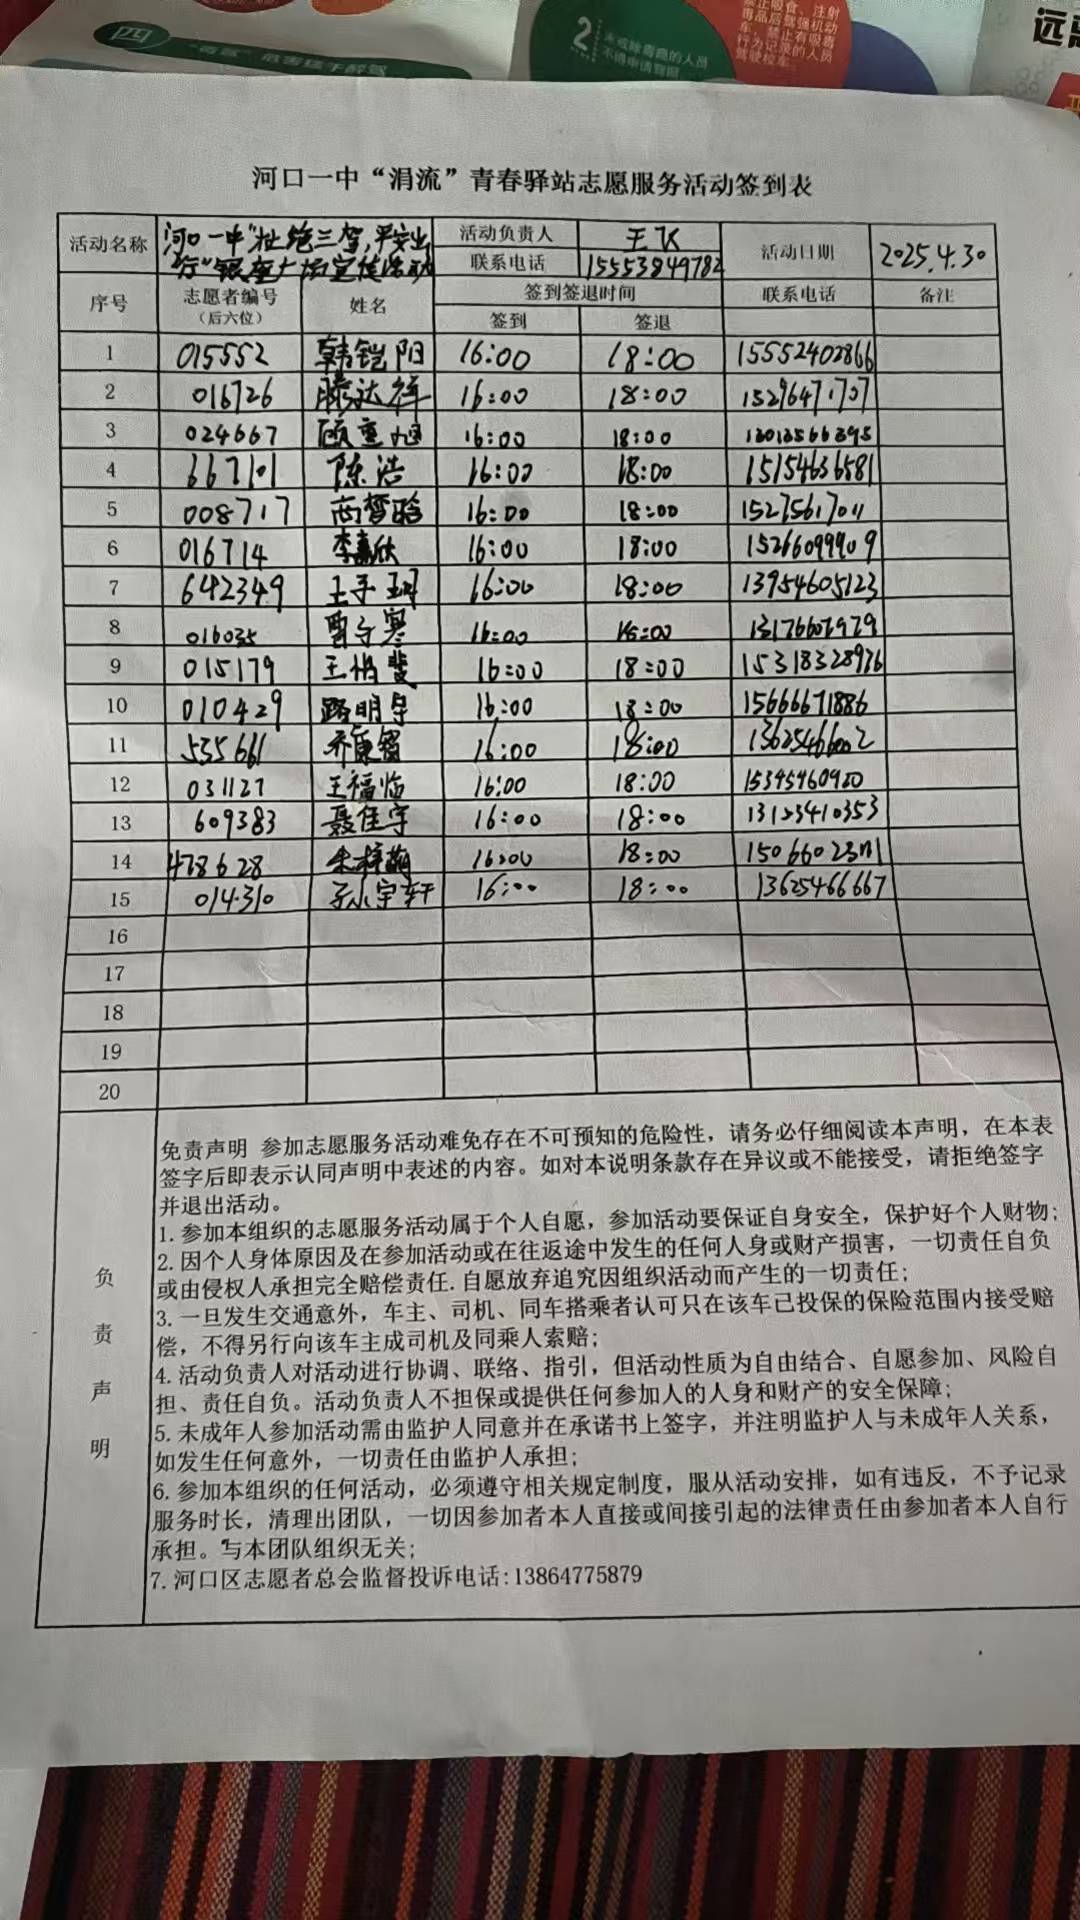 四
“毒驾”危害猛于醉驾
2
未戒除毒瘾的人员
不得申请驾照
禁止吸食、注射
毒品后驾驶机动
车，禁止有吸毒
行为记录的人员
驾驶校车
远
河口一中“涓流”青春驿站志愿服务活动签到表
活动名称 河口一中“拒绝三驾，平安出行”银座广场宣传活动 活动负责人 王飞 活动日期 2025.4.30
联系电话 15553849782
序号 志愿者编号（后六位） 姓名 签到签退时间 联系电话 备注
签到 签退
1 015552 韩铠阳 16:00 18:00 15552402866
2 016726 滕达祥 16:00 18:00 15296471707
3 024667 顾重旭 16:00 18:00
4 667101 陈浩 16:00 18:00 15154636581
5 008717 商梦晗 16:00 18:00 15275617011
6 016714 李嘉欣 16:00 18:00 15266099909
7 642349 王子玥 16:00 18:00 13954605123
8 016035 贾宁寒 16:00 18:00 13176607979
9 015179 王怡斐 16:00 18:00 15318328976
10 010429 路明宇 16:00 18:00 15666671886
11 535661 乔康智 16:00 18:00
12 031127 王福临 16:00 18:00 15345460920
13 609383 聂佳宇 16:00 18:00 13123410353
14 478628 朱梓萌 16:00 18:00
15 014310 孙宇轩 16:00 18:00 13625466667
16
17
18
19
20
负责声明
免责声明 参加志愿服务活动难免存在不可预知的危险性，请务必仔细阅读本声明，在本表
签字后即表示认同声明中表述的内容。如对本说明条款存在异议或不能接受，请拒绝签字
并退出活动。
1.参加本组织的志愿服务活动属于个人自愿，参加活动要保证自身安全，保护好个人财物；
2.因个人身体原因及在参加活动或在往返途中发生的任何人身或财产损害，一切责任自负
或由侵权人承担完全赔偿责任.自愿放弃追究因组织活动而产生的一切责任；
3.一旦发生交通意外，车主、司机、同车搭乘者认可只在该车已投保的保险范围内接受赔
偿，不得另行向该车主成司机及同乘人索赔；
4.活动负责人对活动进行协调、联络、指引，但活动性质为自由结合、自愿参加、风险自
担、责任自负。活动负责人不担保或提供任何参加人的人身和财产的安全保障；
5.未成年人参加活动需由监护人同意并在承诺书上签字，并注明监护人与未成年人关系，
如发生任何意外，一切责任由监护人承担；
6.参加本组织的任何活动，必须遵守相关规定制度，服从活动安排，如有违反，不予记录
服务时长，清理出团队，一切因参加者本人直接或间接引起的法律责任由参加者本人自行
承担。与本团队组织无关；
7.河口区志愿者总会监督投诉电话:13864775879